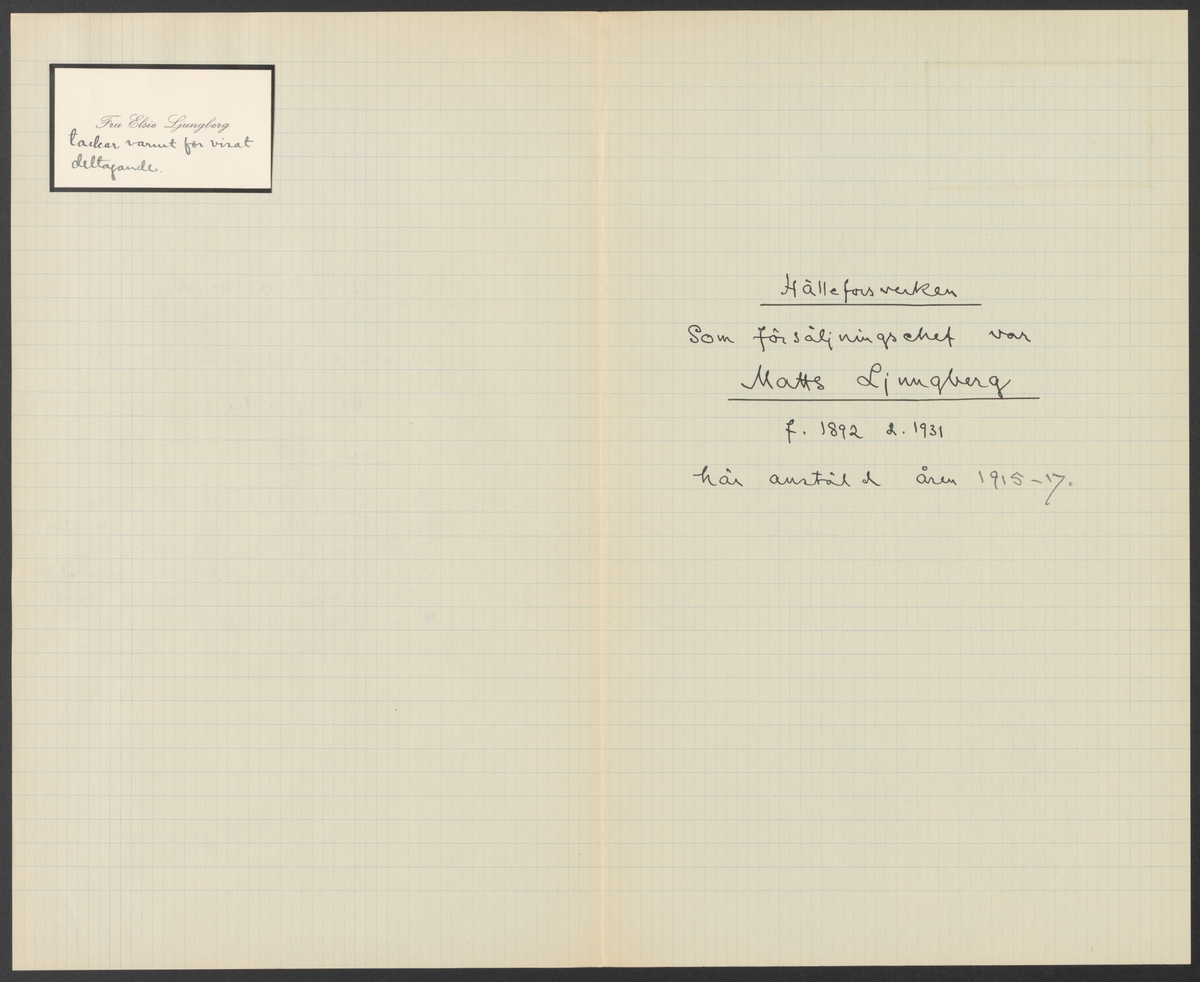 Fru Elsie Ljungberg
tackar varmt för visat
deltagande.
Hälleforsverken
Som försäljningschef var
Matts Ljungberg
f. 1892 d. 1931
här anstäld åren 1915-17.